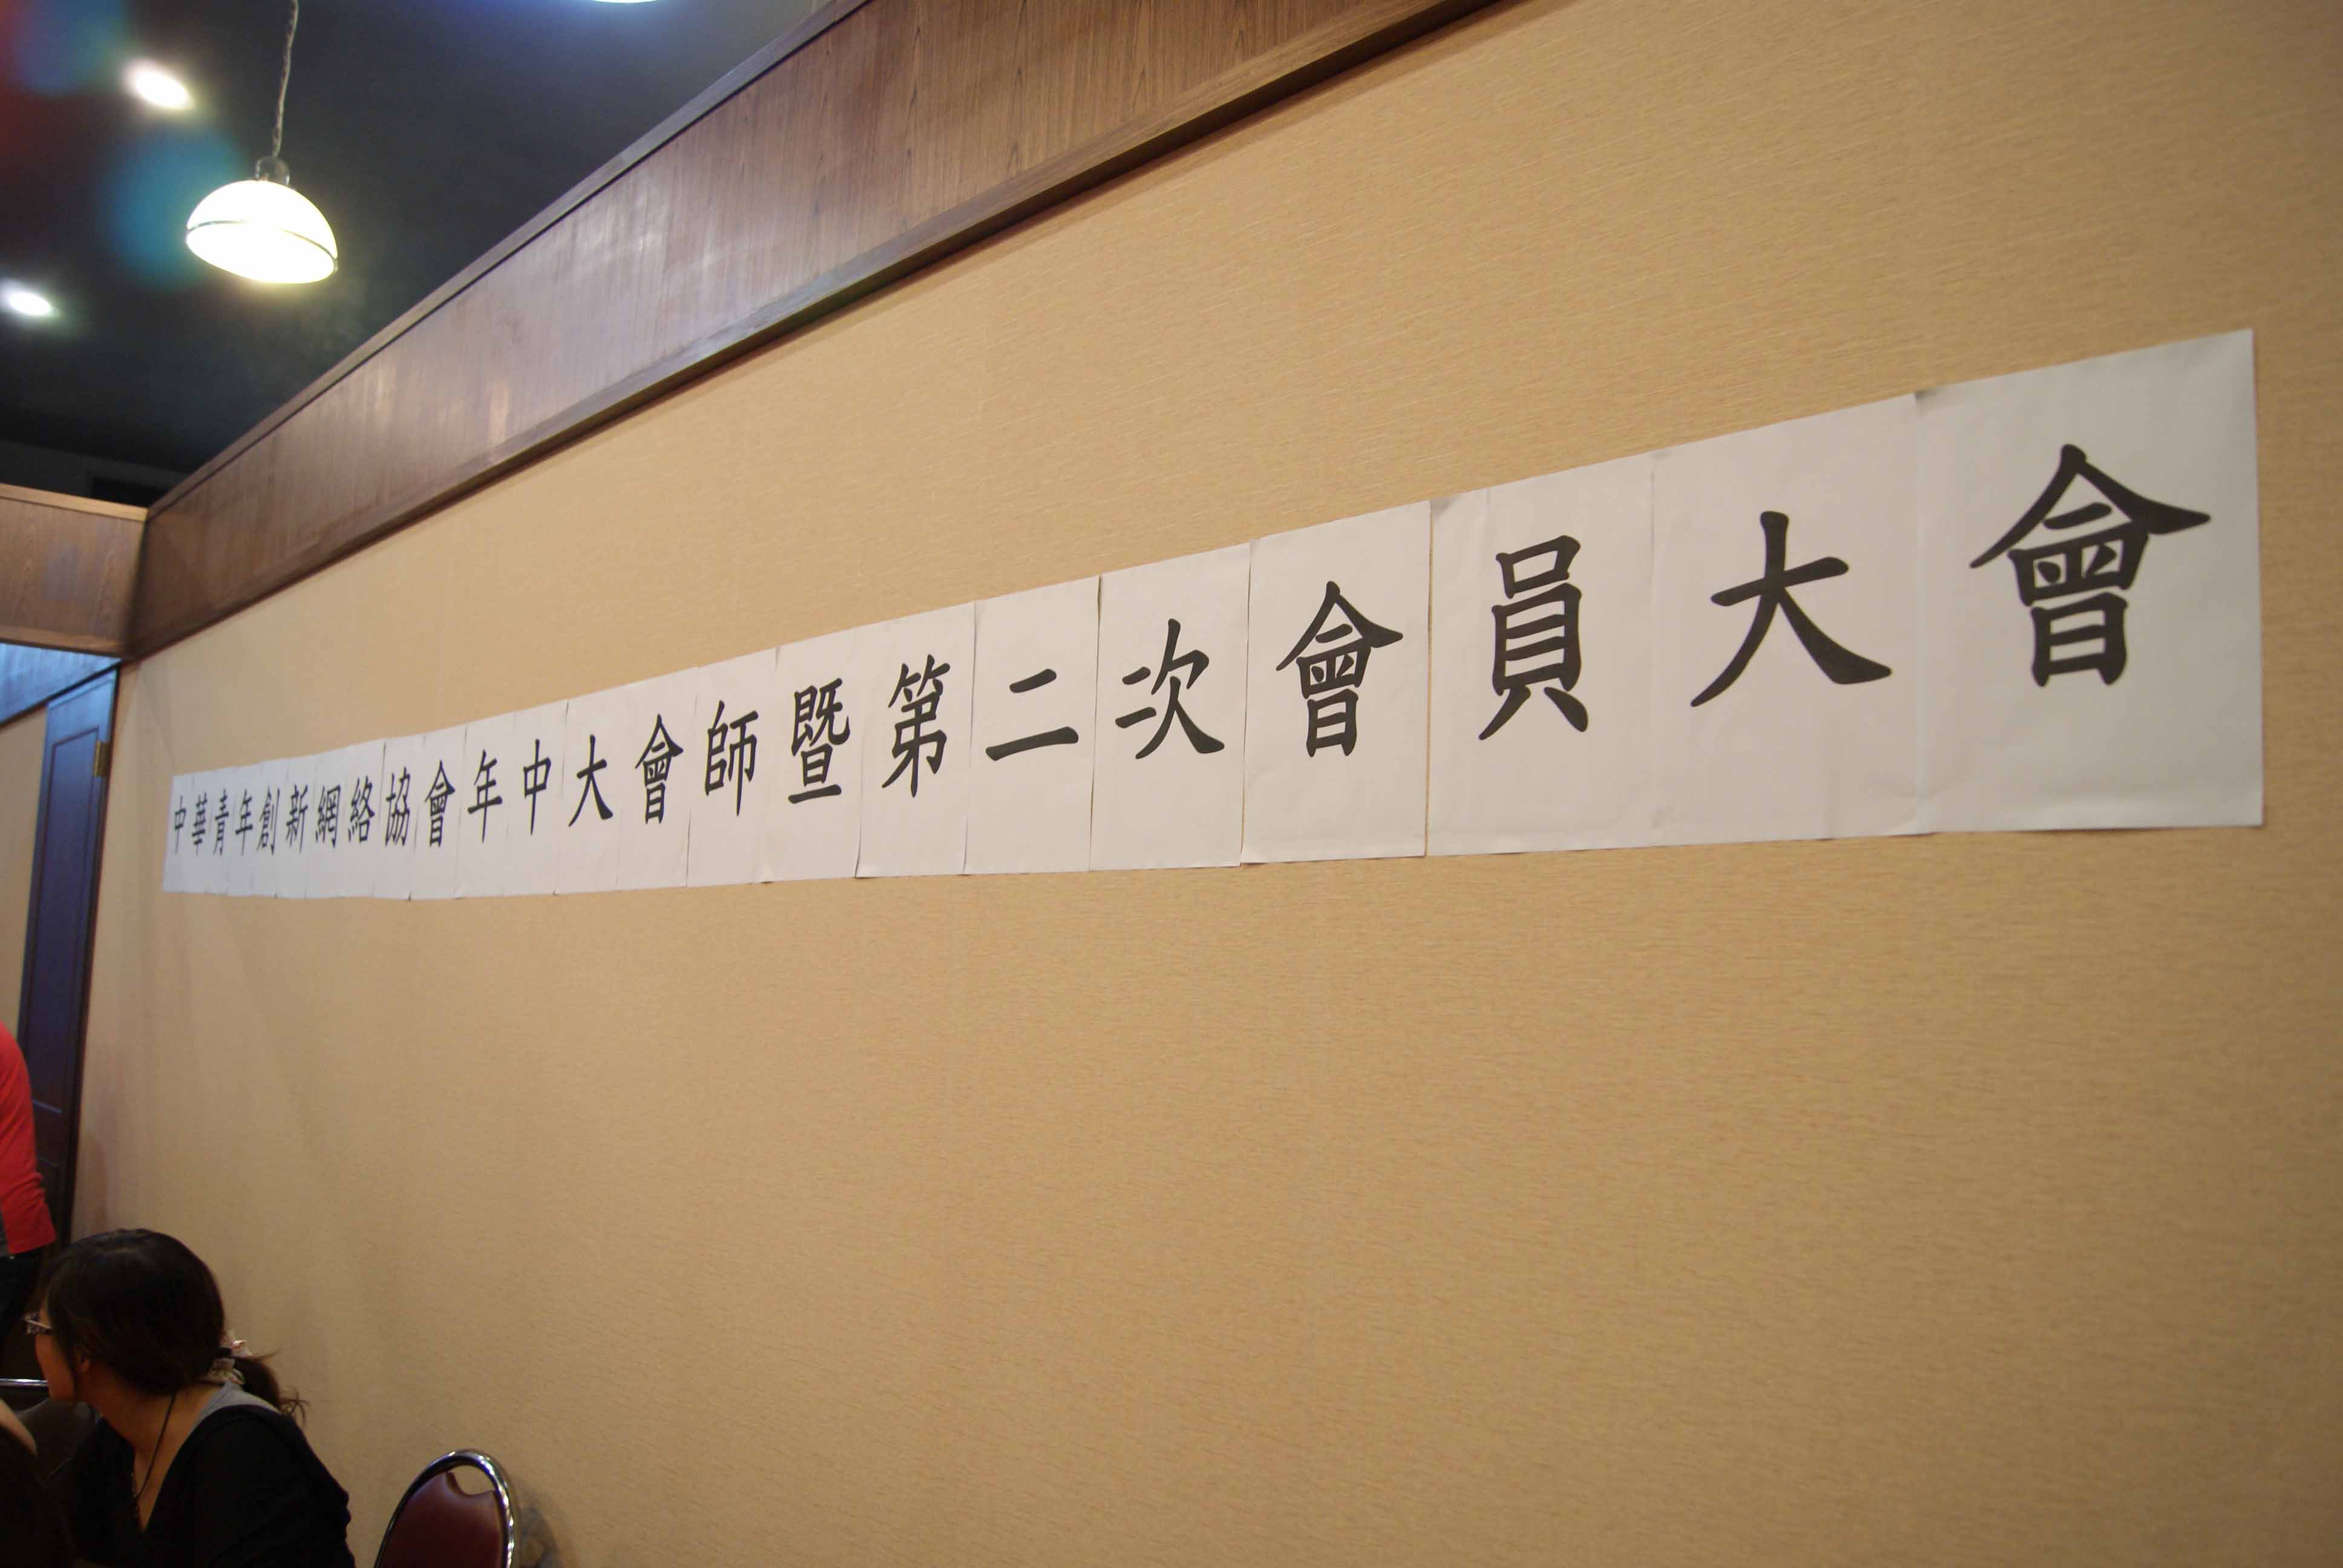 中華青年創新網絡協會年中大會師暨第二次會員大會